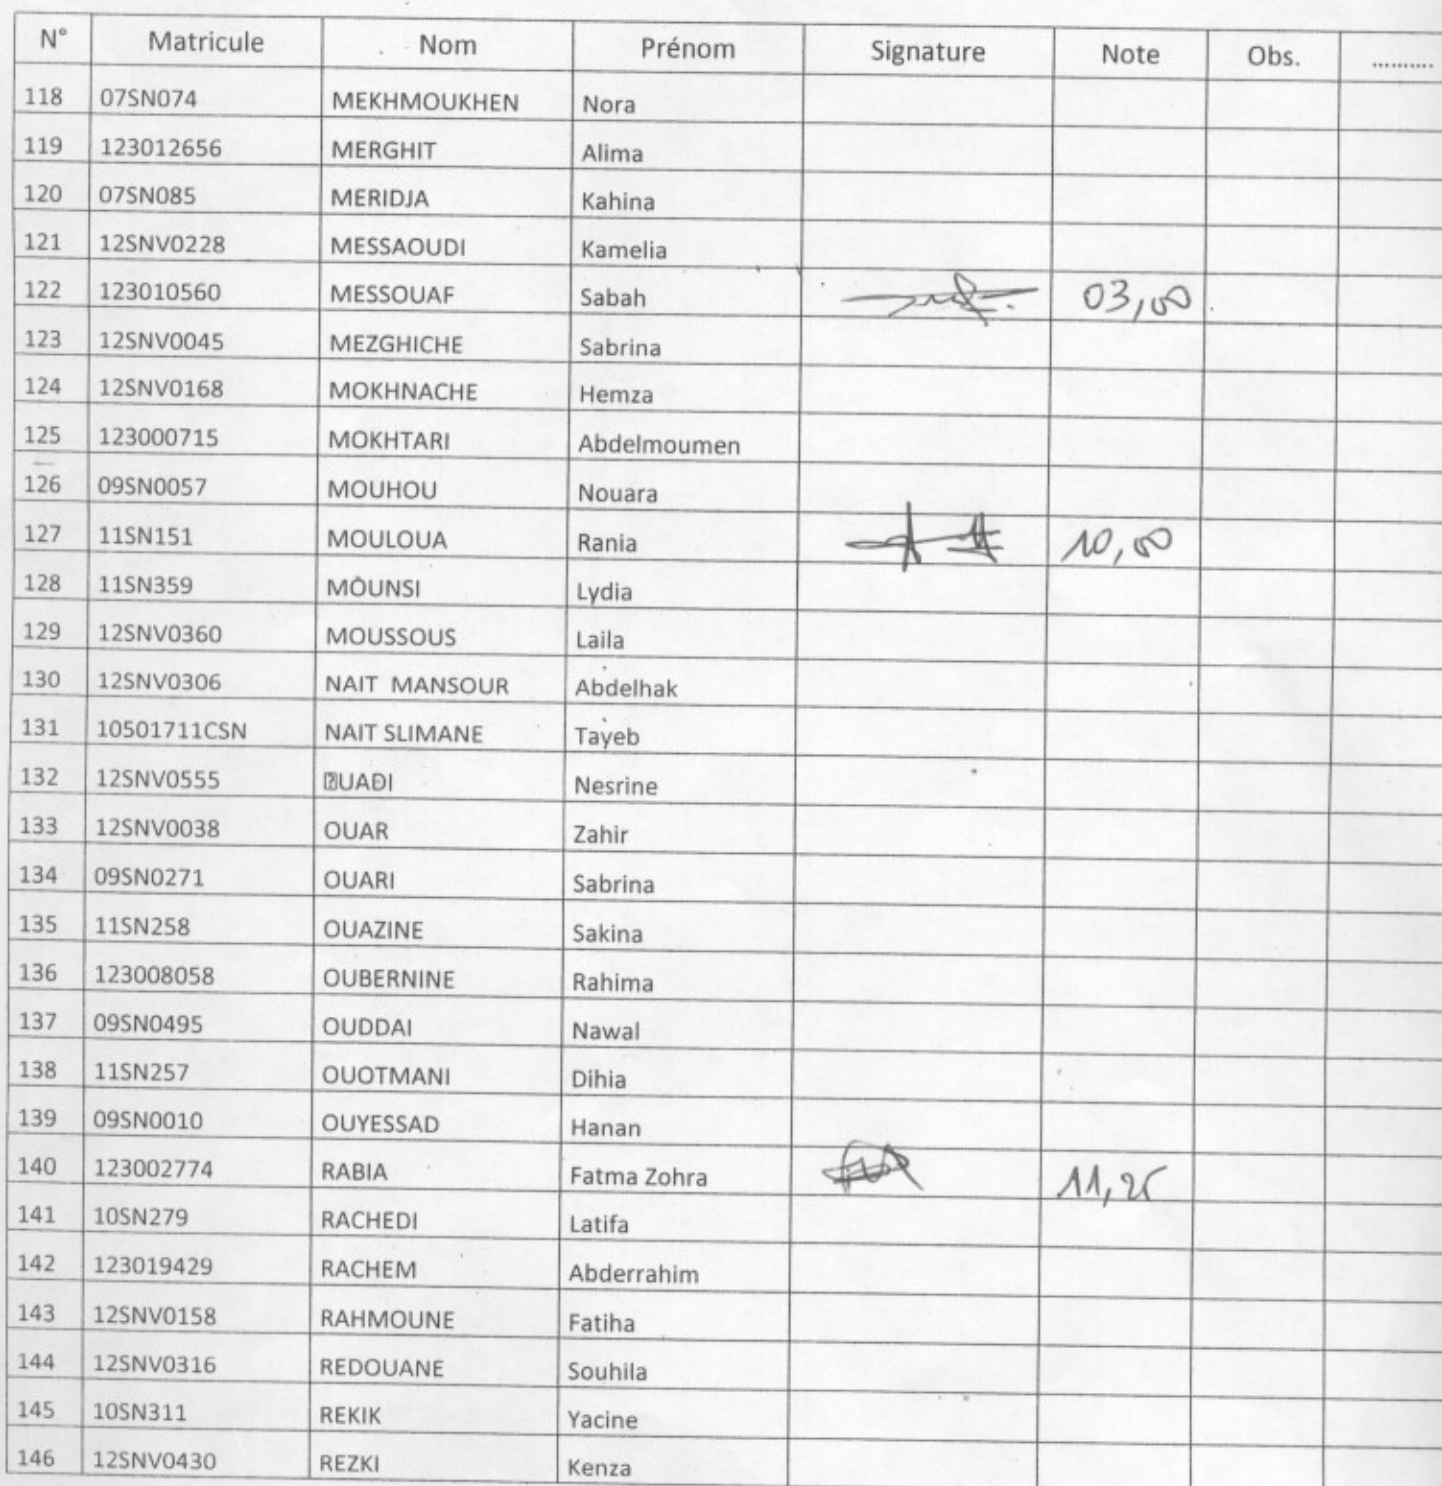 N° Matricule Nom Prénom Signature Note Obs. ..........
118 07SN074 MEKHMOUKHEN Nora
119 123012656 MERGHIT Alima
120 07SN085 MERIDJA Kahina
121 12SNV0228 MESSAOUDI Kamelia
122 123010560 MESSOUAF Sabah 03,00
123 12SNV0045 MEZGHICHE Sabrina
124 12SNV0168 MOKHNACHE Hemza
125 123000715 MOKHTARI Abdelmoumen
126 09SN0057 MOUHOU Nouara
127 11SN151 MOULOUA Rania 10,00
128 11SN359 MOUNSI Lydia
129 12SNV0360 MOUSSOUS Laila
130 12SNV0306 NAIT MANSOUR Abdelhak
131 10501711CSN NAIT SLIMANE Tayeb
132 12SNV0555 Nesrine
133 12SNV0038 OUAR Zahir
134 09SN0271 OUARI Sabrina
135 11SN258 OUAZINE Sakina
136 123008058 OUBERNINE Rahima
137 09SN0495 OUDDAI Nawal
138 11SN257 OUOTMANI Dihia
139 09SN0010 OUYESSAD Hanan
140 123002774 RABIA Fatma Zohra 11,25
141 10SN279 RACHEDI Latifa
142 123019429 RACHEM Abderrahim
143 12SNV0158 RAHMOUNE Fatiha
144 12SNV0316 REDOUANE Souhila
145 10SN311 REKIK Yacine
146 12SNV0430 REZKI Kenza